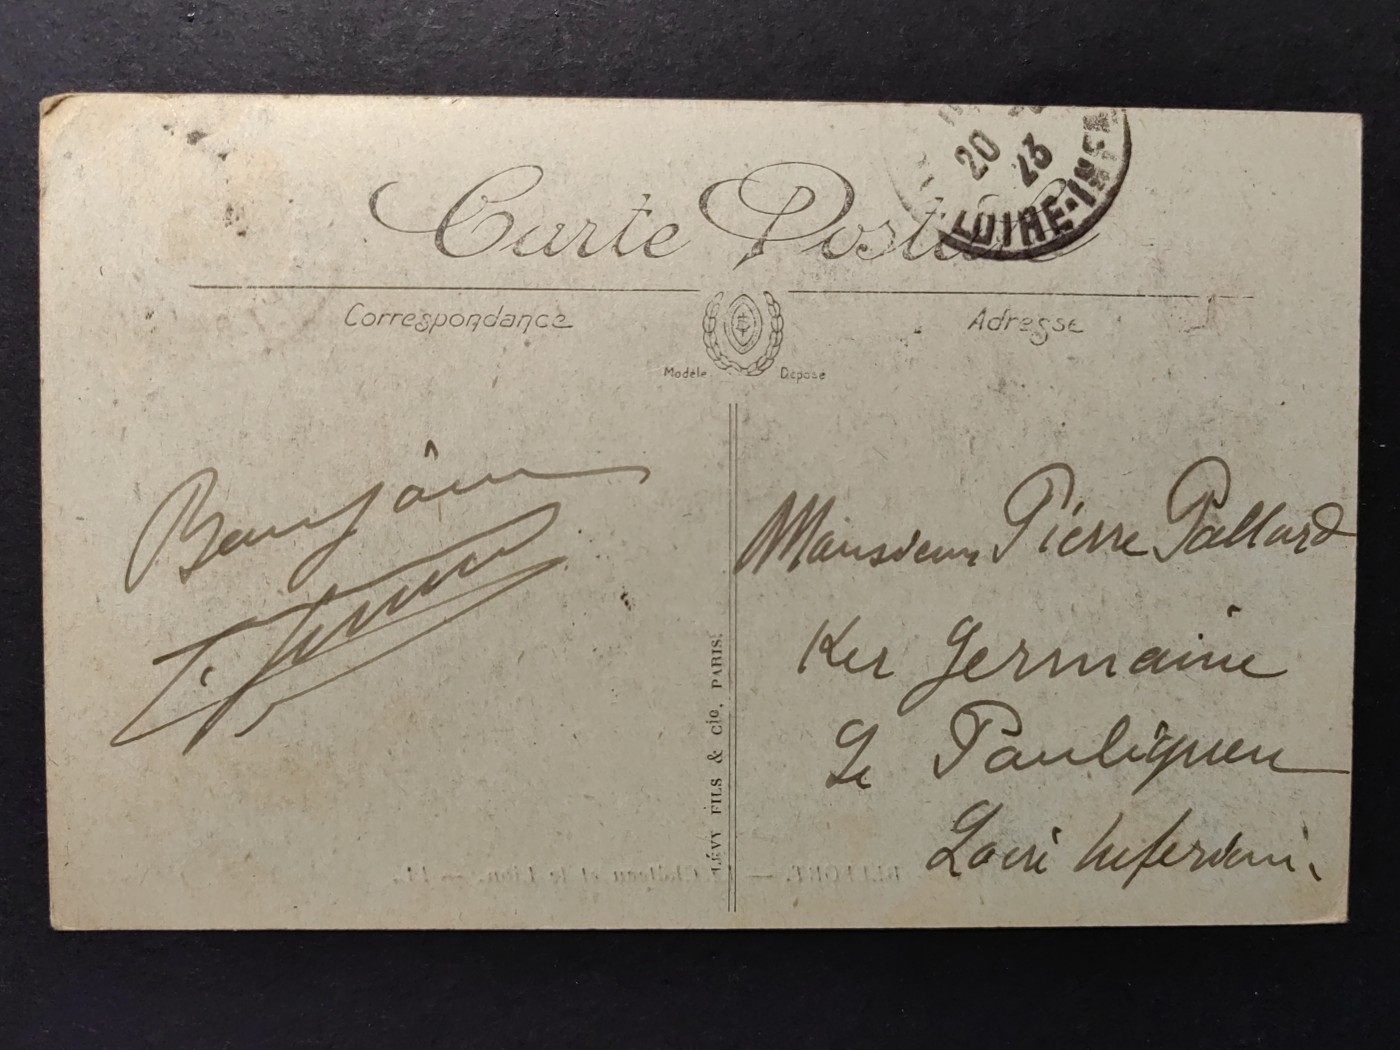 20
23
LOIRE-INF
Carte Postale
Correspondance
Adresse
Modèle Déposé
Bonjour
Monsieur Pierre Pallard
Ker Germaine
Le Pouliguen
Loire Inferieure
LÉVY FILS & cie, PARIS.
BELFORT. — Le Château et le Lion. — 11.